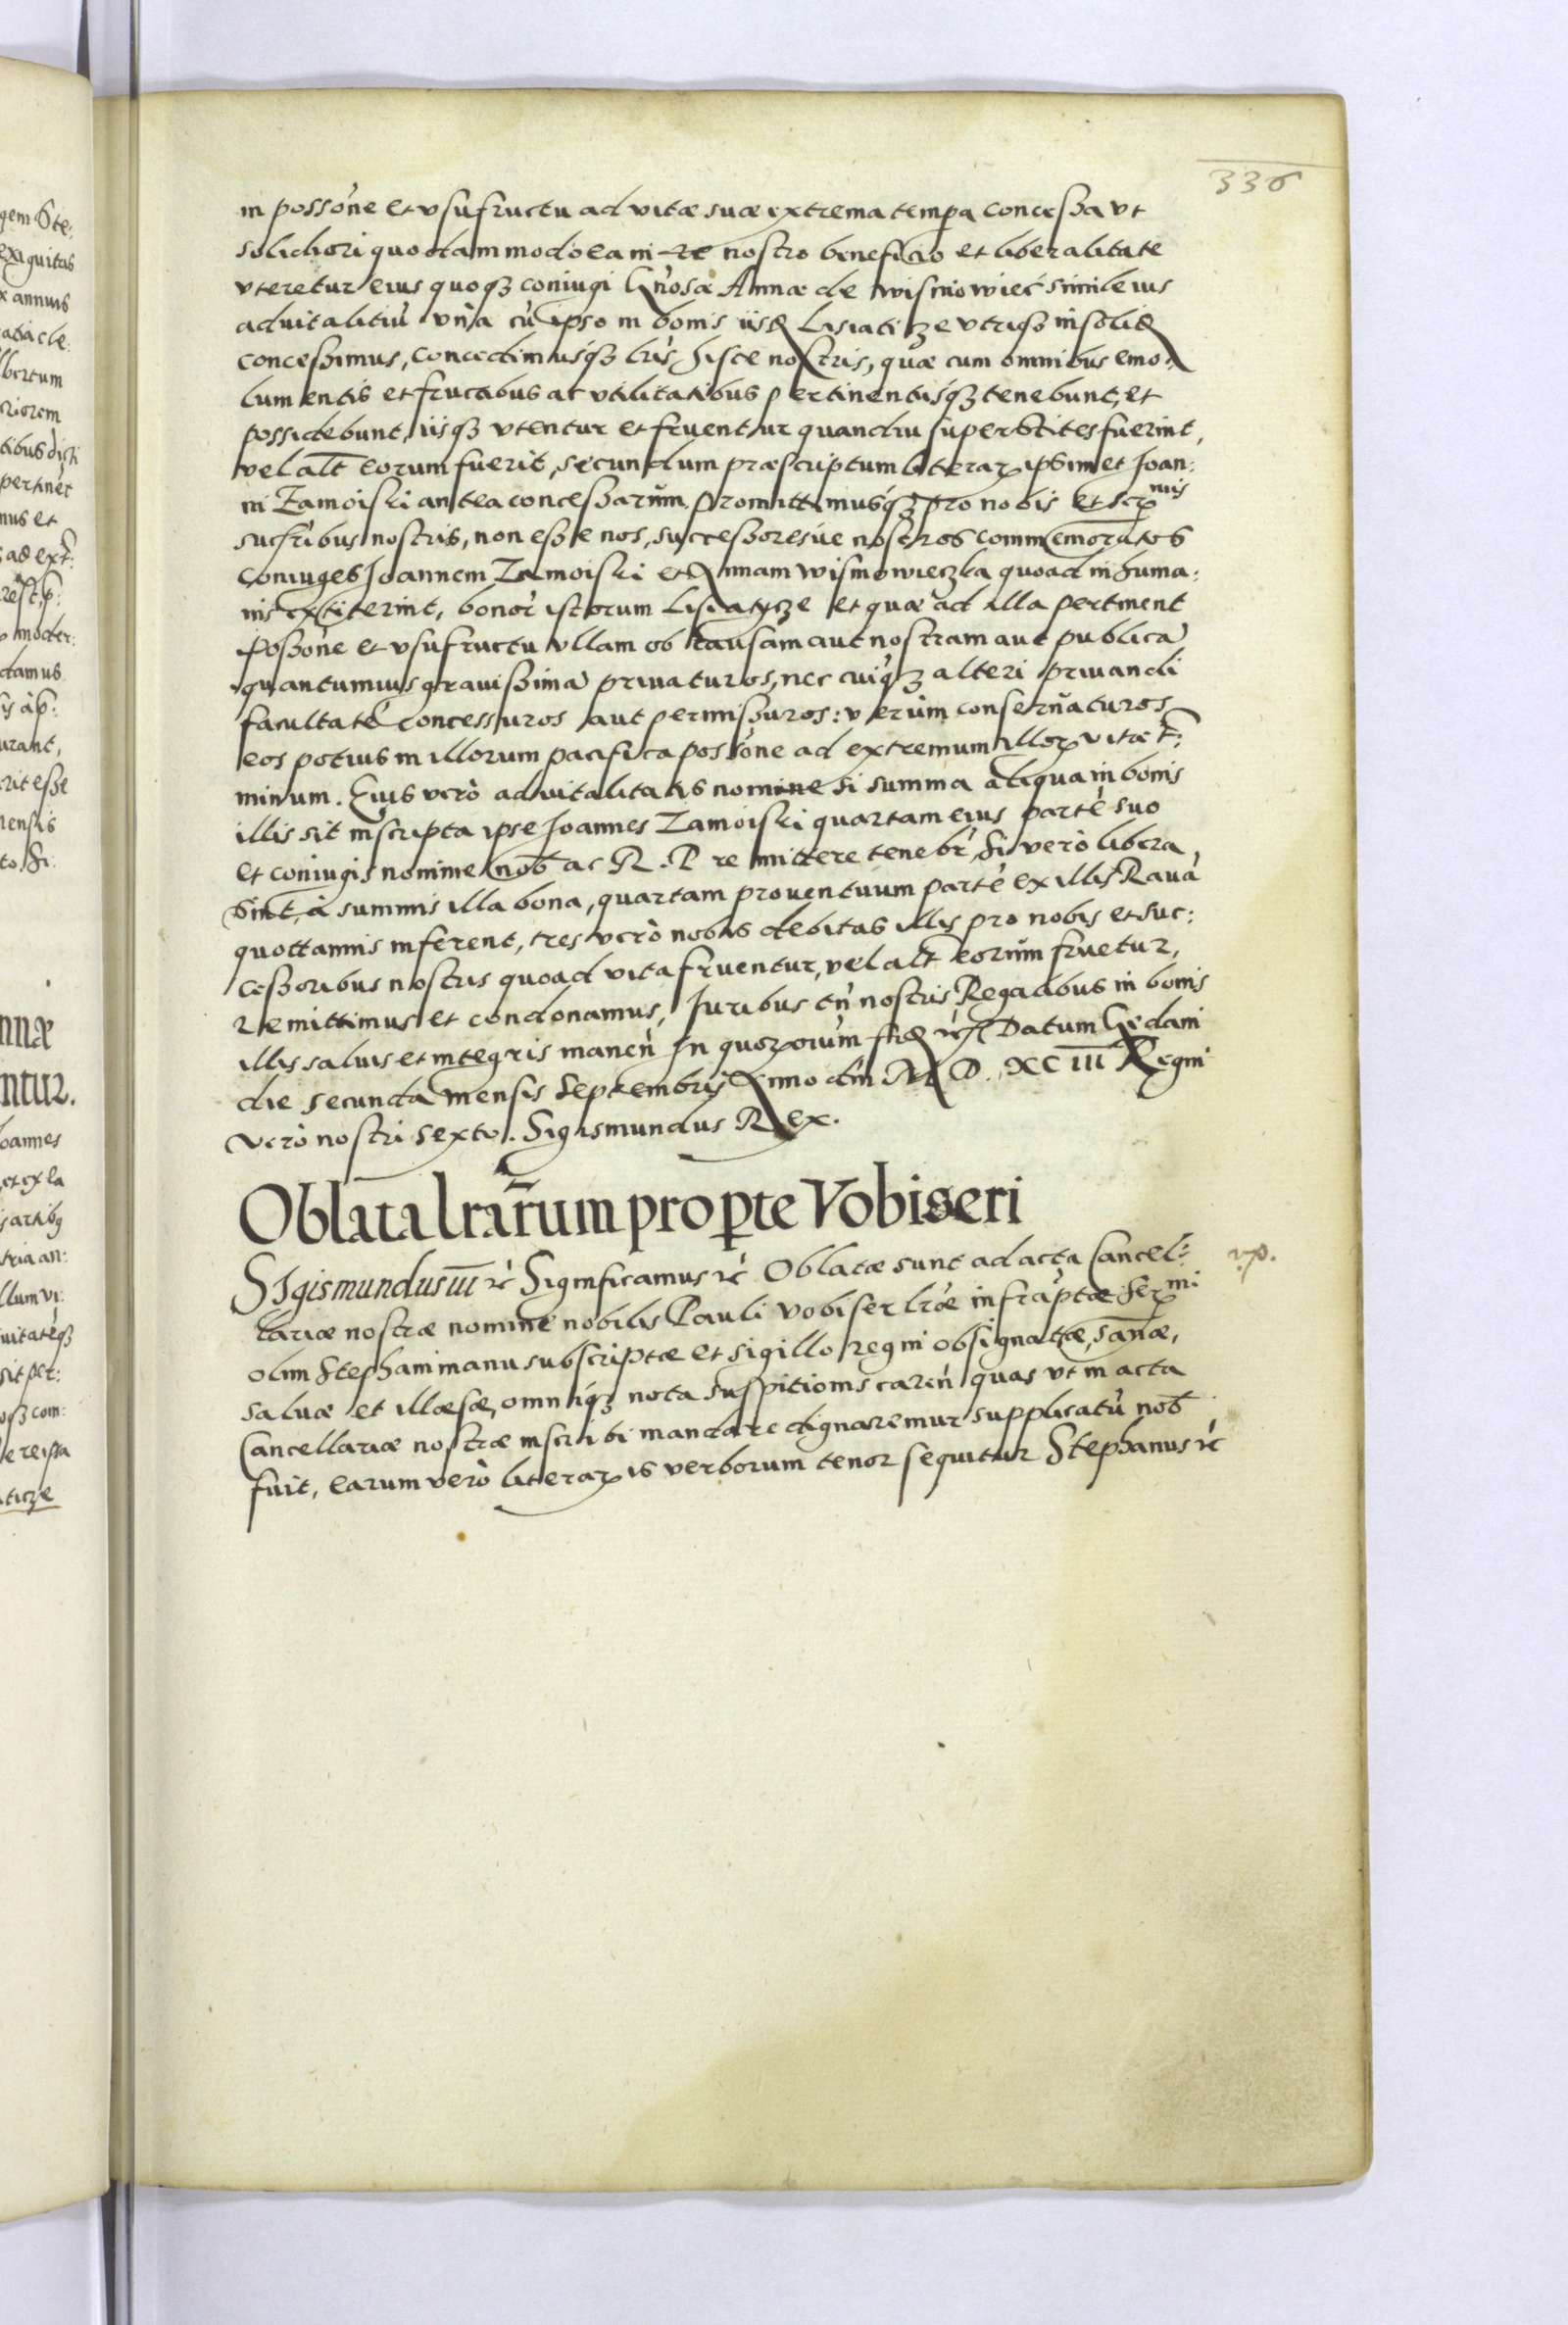 336
in possone et vsufructu ad vitæ suæ extrema tempa concessa vt
solidiori quodammodo ea in re nostro beneficio et liberalitate
vteretur eius quoqꝫ coniugi Gnosæ Annæ de Wisniowieć simile ius
aduitalitiu vna cu ipso in bonis iisd Lisiaticze vtrisqꝫ in solid
concessimus, concedimusqꝫ lris hisce nostris, quæ cum omnibus emo:
lumentis et fructibus ac vtilitatibus pertinentiisqꝫ tenebunt, et
possidebunt, iisqꝫ vtentur et fruentur quandiu superstites fuerint,
vel alt eorum fuerit, secundum præscriptum literaꝝ ipsimet Ioan:
ni Zamoiski antea concessarum. Promittimusqꝫ pro nobis et Serꝫ nis
sucribus nostris, non esse nos, successoresúe nostros commemoratos
coniuges Ioannem Zamoiski et Annam Wisniowieczka quoad in huma:
nis extiterint, bonor istorum Lisiatycze et quæ ad illa pertinent
Possone et vsufructu vllam ob causam aut nostram aut publica
quantumuis grauissima priuaturos, nec cuiqꝫ alteri priuandi
facultate concessuros aut permissuros: verùm conseruaturos
eos potius in illorum pacifica possone ad extremum illoꝝ vitæ t:
minum. Eius verò aduitalitatis nomine si summa aliqua in bonis
illis sit inscripta ipse Ioannes Zamoiski quartam eius parte suo
et coniugis nomine nob ac R. P. remittere tenebr, si verò libera,
sint, à summis illa bona, quartam prouentuum parte ex illis Raua
quottannis inferent, tres verò nobis debitas illis pro nobis et suc:
cessoribus nostris quoad vita fruentur, vel alt eorum fruetur,
remittimus et condonamus, Iuribus tn nostris Regalibus in bonis
illis saluis et integris manen In quoꝝ oium fid ꝛc Datum Gedani
die secunda mensis Septembris Anno dni M. D. XCIII Regni
verò nostri sexto. Sigismundus Rex.
Oblata lrarum pro pte Vobiseri
SIgismundus III ꝛc Significamus ꝛc Oblatæ sunt ad acta Cancel: vp.
lariæ nostræ nomine nobilis Pauli Vobiser lræ infraptæ Serꝫ mi
olim Stephani manu subscriptæ et sigillo regni obsignatæ, sanæ,
saluæ et illæsæ, omniqꝫ nota suspitionis caren quas vt in acta
Cancellariæ nostræ inscribi mandare dignaremur supplicatu nob
fuit, earum verò literaꝝ is verborum tenor sequitur Stephanus ꝛc